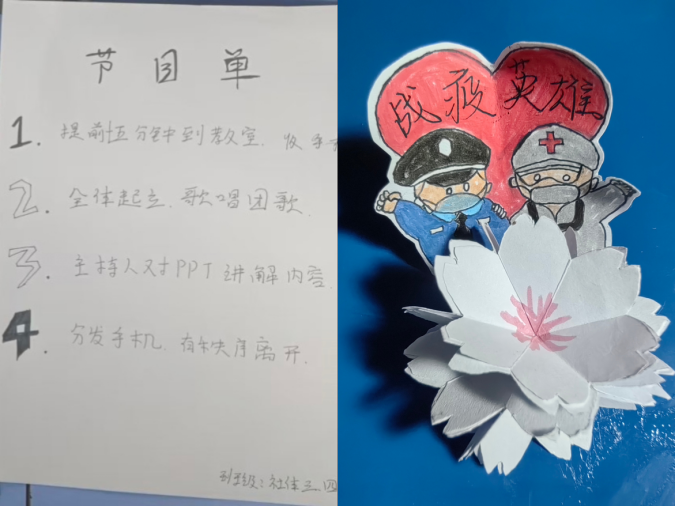 节目单
1. 提前五分钟到教室. 收手
2. 全体起立. 歌唱团歌.
3. 主持人对PPT讲解内容.
4. 分发手机. 有秩序离开.
班级:社体三.四
战疫英雄